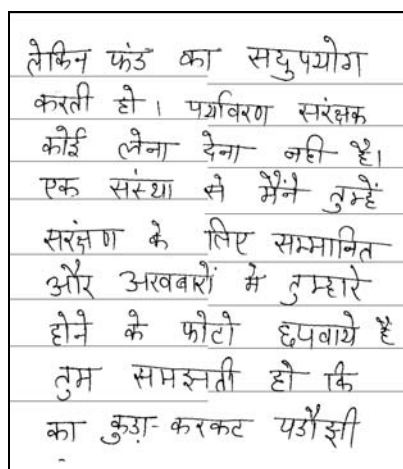 लेकिन फंड का सदुपयोग
करती हो। पर्यावरण सरंक्षक
कोई लेना देना नही है।
एक संस्था से मैंने तुम्हें
सरंक्षण के लिए सम्मानित
और अखबारों मे तुम्हारे
होने के फोटो छपवाये है
तुम समझती हो कि
का कुड़ा-करकट पडौझी